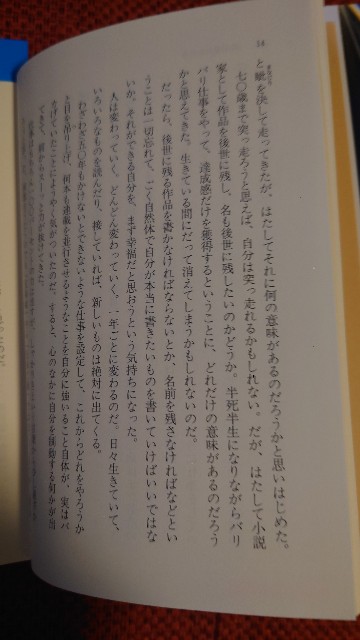 14
と眦を決して走ってきたが、はたしてそれに何の意味があるのだろうかと思いはじめた。
七〇歳まで突っ走ろうと思えば、自分は突っ走れるかもしれない。だが、はたして小説
家として作品を後世に残し、名も後世に残したいのかどうか。半死半生になりながらバリ
バリ仕事をやって、達成感だけを獲得するということに、どれだけの意味があるのだろう
かと思えてきた。生きている間にだって消えてしまうかもしれないのだ。
だったら、後世に残る作品を書かなければならないとか、名前を残さなければなどとい
うことは一切忘れて、ごく自然体で自分が本当に書きたいものを書いていけばいいではな
いか。それができる自分を、まず幸福だと思おうという気持ちになった。
人は変わっていく。どんどん変わっていく。一年ごとに変わるのだ。日々生きていて、
いろいろなものを読んだり、接していれば、新しいものは絶対に出てくる。
わざわざ五〇年もかけないとできないような仕事を設定して、これからどれをやろうか
と目を吊り上げ、何本も連載を進行させるようなことを自分に強いること自体が、実はバ
かげていることにようやく気がついたのだ。すると、心のなかに自分を強制する何かが出
てきて、肩からスーッと力が抜けてきた。